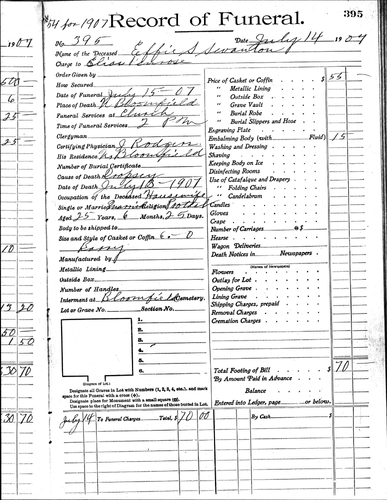 54 for 1907
Record of Funeral.
395
1907
No. 395
Date July 14 1907
Name of the Deceased Effie S Swanton
Charge to Elias Penrose
Order Given by
How Secured
Date of Funeral July 15-07
Place of Death N Bloomfield
Funeral Services at Church
Time of Funeral Services 2 PM
Clergyman
Certifying Physician J Rodgers
His Residence No Bloomfield
Number of Burial Certificate
Cause of Death Dropsey
Date of Death July 13-1907
Occupation of the Deceased Housewife
Single or Married Religion
Aged 25 Years, 6 Months, 25 Days
Body to be shipped to
Size and Style of Casket or Coffin 6-0
Manufactured by
Metallic Lining
Outside Box
Number of Handles
Interment at Bloomfield Cemetery.
Lot or Grave No. Section No.
1.
2.
3.
4.
5.
6.
7.
(Diagram of Lot.)
Designate all Graves in Lot with Numbers (1, 2, 3, 4, etc.), and mark
space for this Funeral with a cross (+).
Designate place for Monument with a small square (□).
Use space to the right of Diagram for the names of those buried in Lot.
Price of Casket or Coffin $ 55
" Metallic Lining
" Outside Box
" Grave Vault
" Burial Robe
" Burial Slippers and Hose
Engraving Plate
Embalming Body (with Fluid) 15
Washing and Dressing
Shaving
Keeping Body on Ice
Disinfecting Rooms
Use of Catafalque and Drapery
" Folding Chairs
" Candelabrum
Candles
Gloves
Crape
Number of Carriages @ $
Hearse
Wagon Deliveries
Death Notices in Newspapers
(Names of Newspapers)
Flowers
Outlay for Lot
Opening Grave
Lining Grave
Shipping Charges, prepaid
Removal Charges
Cremation Charges
Total Footing of Bill $ 70
By Amount Paid in Advance
Balance
Entered into Ledger, page or below.
July 14 To Funeral Charges Total, $ 70 00
By Cash $
600
6
25
25
10
13 20
50
1 50
30 70
30 70